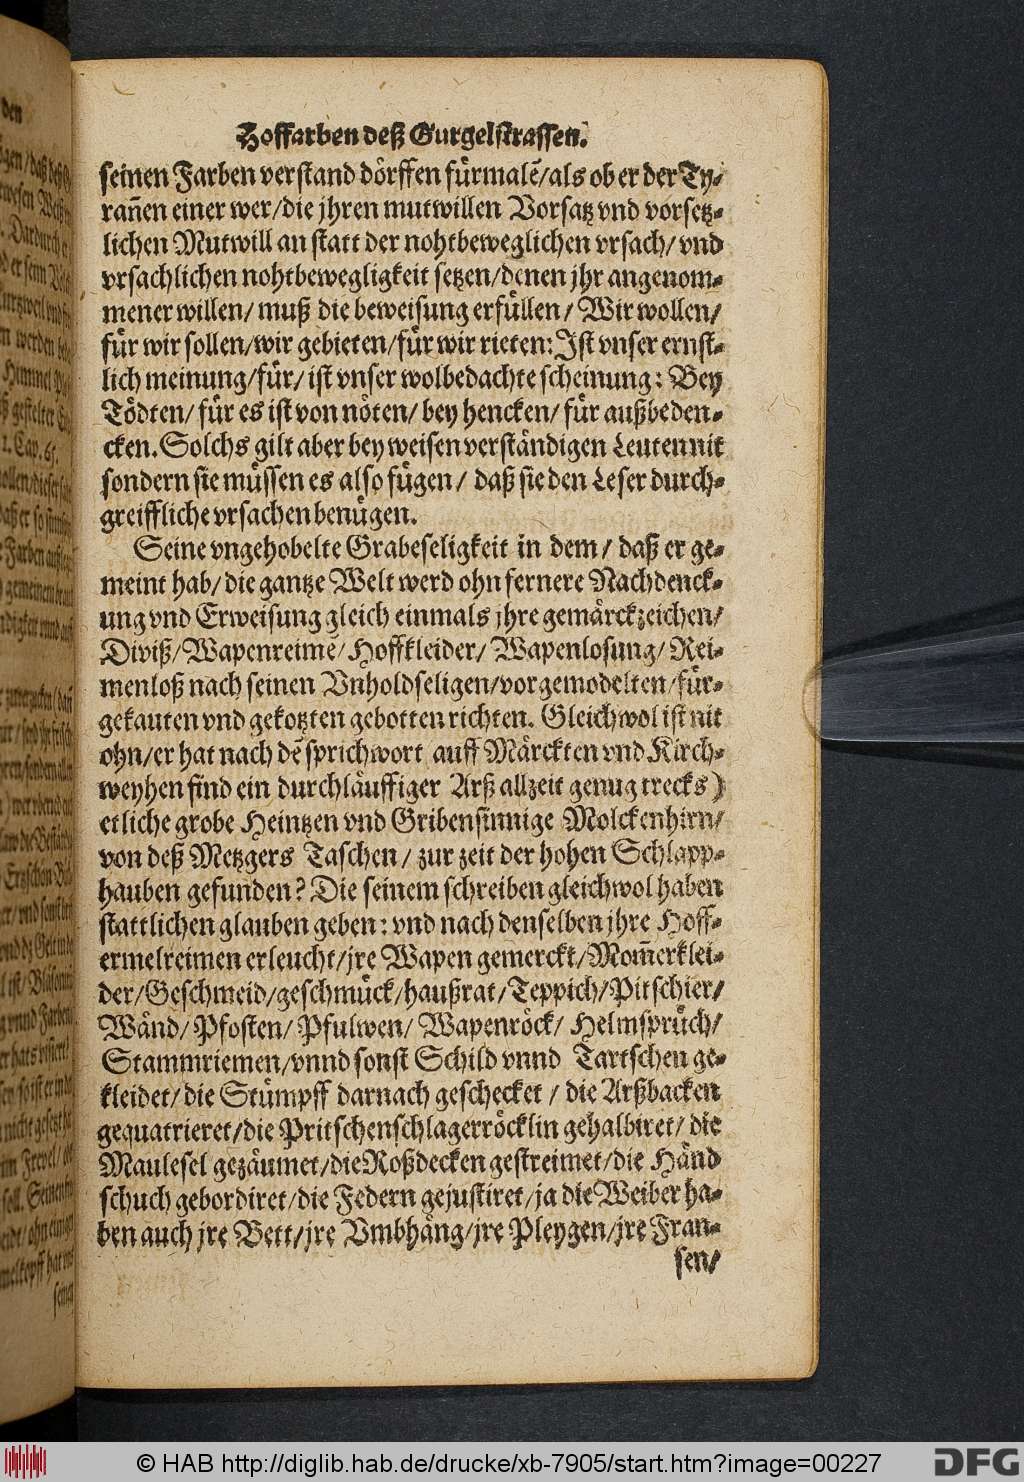 Hoffarben deß Gurgelstrassen.
seinen Farben verstand dörffen fürmalẽ/als ob er der Ty-
rañen einer wer/die jhren mutwillen Vorsatz vnd vorsetz-
lichen Mutwill an statt der nohtbeweglichen vrsach/ vnd
vrsachlichen nohtbewegligkeit setzen/denen jhr angenom-
mener willen/ muß die beweisung erfüllen/ Wir wollen/
für wir sollen/wir gebieten/für wir rieten: Ist vnser ernst-
lich meinung/für/ ist vnser wolbedachte scheinung: Bey
Tödten/ für es ist von nöten/ bey hencken/ für außbeden-
cken. Solchs gilt aber bey weisen verständigen Leuten nit
sondern sie müssen es also fügen/ daß sie den Leser durch-
greiffliche vrsachen benügen.
Seine vngehobelte Grabeseligkeit in dem/ daß er ge-
meint hab/die gantze Welt werd ohn fernere Nachdenck-
ung vnd Erweisung gleich einmals jhre gemärckzeichen/
Diviß/Wapenreimẽ/Hoffkleider/ Wapenlosung/ Rei-
menloß nach seinen Vnholdseligen/vorgemodelten/für-
gekauten vnd gekotzten gebotten richten. Gleichwol ist nit
ohn/er hat nach dẽ sprichwort auff Märckten vnd Kirch-
weyhen find ein durchläuffiger Arß allzeit genug trecks)
etliche grobe Heintzen vnd Gribensinnige Molckenhirn/
von deß Metzgers Taschen/ zur zeit der hohen Schlapp-
hauben gefunden? Die seinem schreiben gleichwol haben
stattlichen glauben geben: vnd nach denselben jhre Hoff-
ermelreimen erleucht/jre Wapen gemerckt/Mom̃erklei-
der/Geschmeid/geschmück/haußrat/Teppich/Pitschier/
Wänd/Pfosten/Pfulwen/ Wapenröck/ Helmsprüch/
Stammriemen/vnnd sonst Schild vnnd Tartschen ge-
kleidet/die Stümpff darnach geschecket/ die Arßbacken
gequatrieret/die Pritschenschlagerröcklin gehalbiret/ die
Maulesel gezäumet/die Roßdecken gestreimet/die Händ
schuch gebordiret/die Federn gejustiret/ja die Weiber ha-
ben auch jre Bett/jre Vmbhäng/jre Pleygen/jre Fran-
sen/
© HAB http://diglib.hab.de/drucke/xb-7905/start.htm?image=00227
DFG